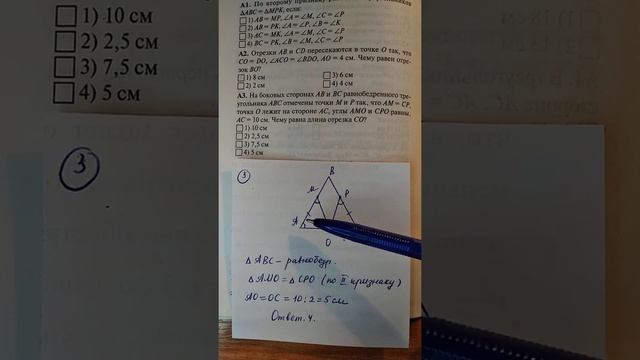 А1. По второму признаку
△ABC = △MPK, если:
1) AB = MP, ∠A = ∠M, ∠C = ∠P
2) AB = PK, ∠A = ∠P, ∠B = ∠K
3) AC = MK, ∠A = ∠M, ∠C = ∠P
4) BC = PK, ∠B = ∠M, ∠C = ∠P
А2. Отрезки AB и CD пересекаются в точке O так, что
CO = DO, ∠ACO = ∠BDO, AO = 4 см. Чему равен отре-
зок BO?
1) 8 см 3) 6 см
2) 2 см 4) 4 см
А3. На боковых сторонах AB и BC равнобедренного тре-
угольника ABC отмечены точки M и P так, что AM = CP,
точка O лежит на стороне AC, углы AMO и CPO равны,
AC = 10 см. Чему равна длина отрезка CO?
1) 10 см
2) 2,5 см
3) 7,5 см
4) 5 см
3
B
M P
A
O
△ ABC – равнобедр.
△ AMO = △ CPO (по II признаку)
AO = OC = 10 : 2 = 5 см
Ответ. 4.
1) 10 см
2) 2,5 см
3) 7,5 см
4) 5 см
3